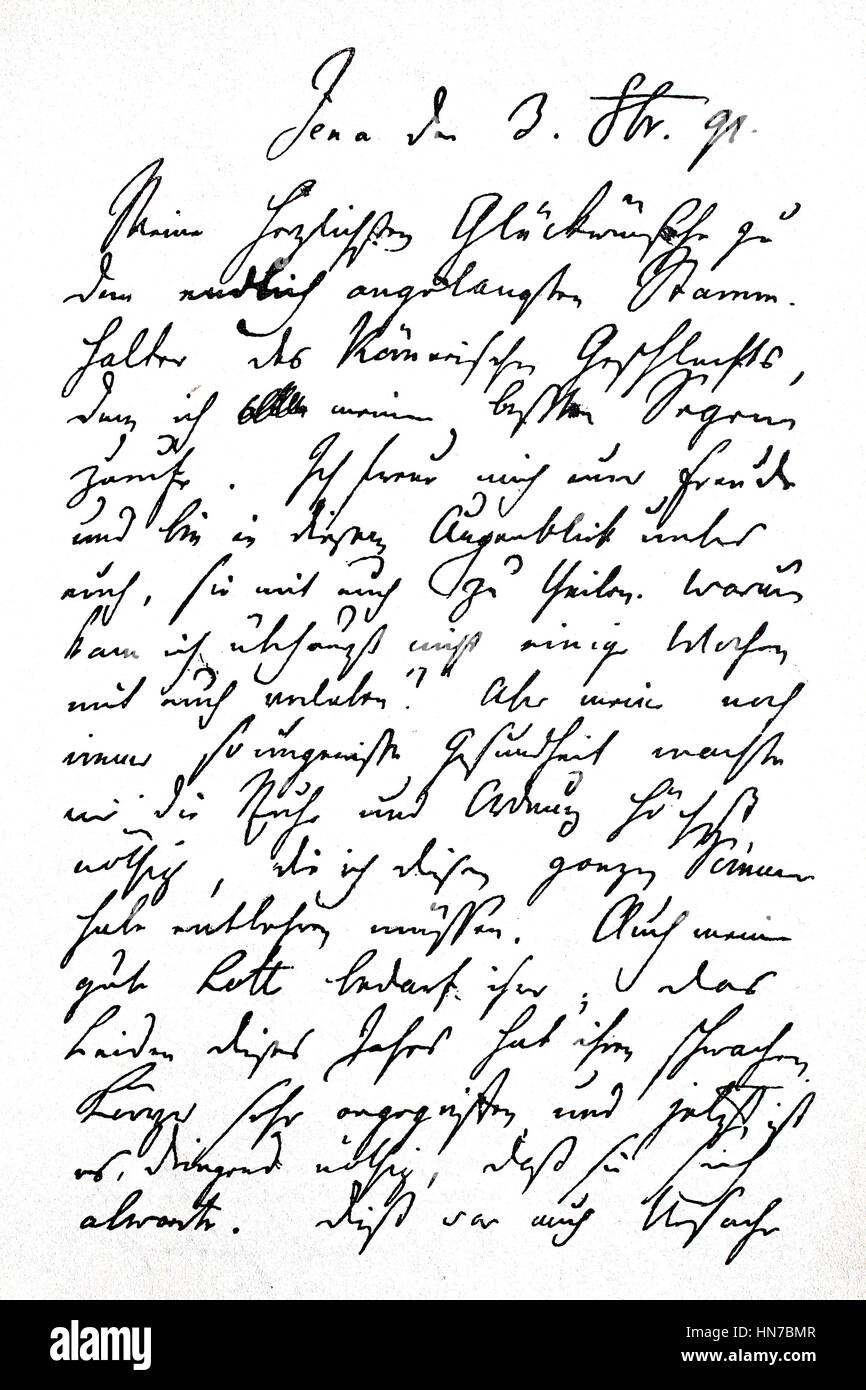 Jena den 3. 8br. 91.
Meine herzlichsten Glückwünsche zu
dem endlich angelangten Stamm-
halter des Körnerischen Geschlechts,
dem ich meinen besten Segen
zurufe. Ich freue mich eurer Freude
und bin in diesem Augenblick unter
euch, sie mit euch zu theilen. Warum
kann ich überhaupt nicht einige Wochen
mit euch verleben? Aber meine noch
immer so ungewisse Gesundheit machte
mir die Ruhe und Ordnung höchst
nöthig, die ich diesen ganzen Sommer
habe entbehren müssen. Auch meine
gute Lotte bedarf ihrer, das
Leiden dieses Jahrs hat ihren schwachen
Körper sehr angegriffen und jetzt ist
es dringend nöthig, daß sie sich
abwarte. Dieß war auch Ursache
alamy
Image ID: HN7BMR
www.alamy.com